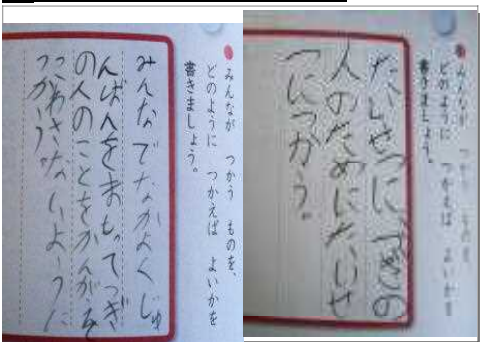 みんなが つかう ものを、
どのように つかえば よいかを
書きましょう。
みんなでなかよくじゅ
んばんをまもってつぎ
の人のことをかんがえ
こわさないよーうに
つかう。
みんなが つかう ものを、
どのように つかえば よいかを
書きましょう。
たいせつに、つぎの
人のためにたいせ
つにつかう。